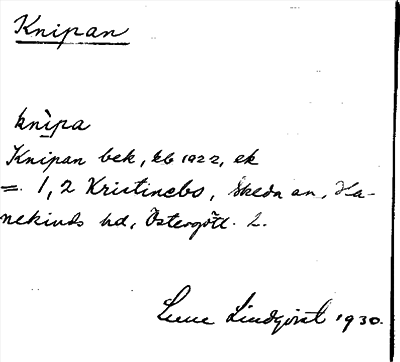 Knipan
knìpa
Knipan bek, kb 1922, ek
=. 1, 2 Kristinebo, Skeda sn, Ha-
nekinds hd, Östergötl. L.
Sune Lindqvist 1930.